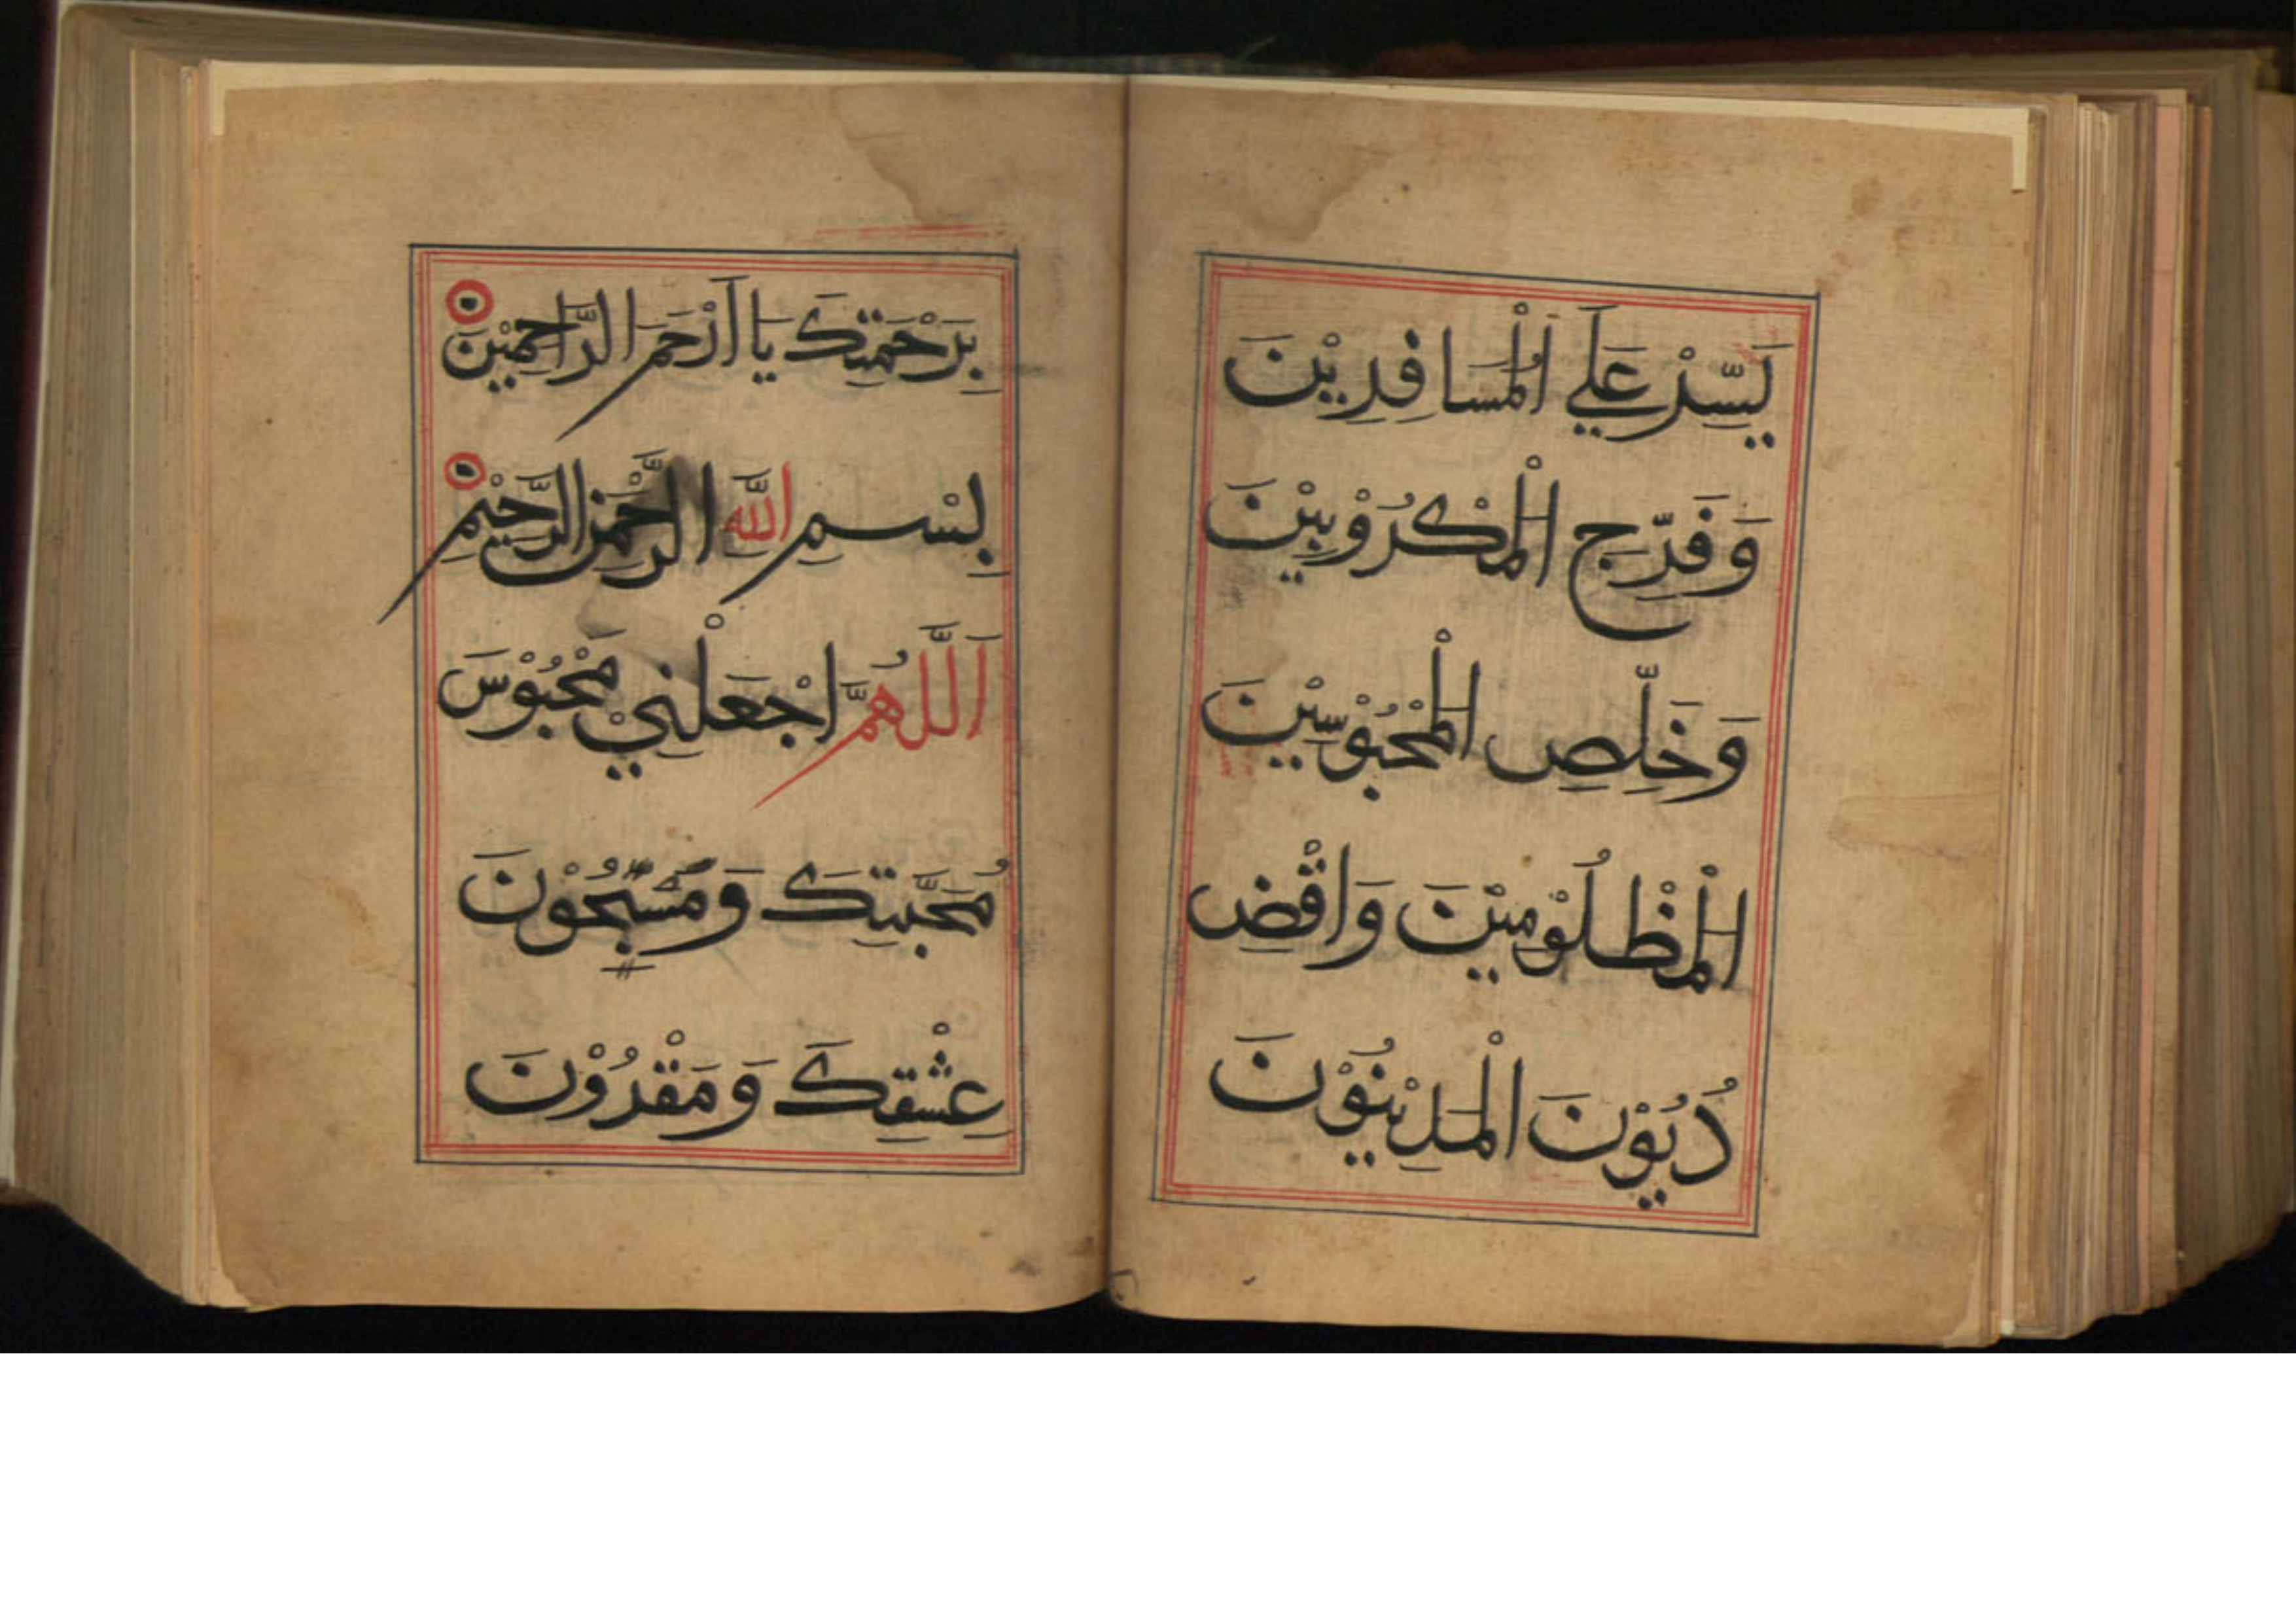 يَسِّرْ عَلَي الْمُسَافِرِيْنَ
وَفَرِّجِ الْمَكْرُوْبِيْنَ
وَخَلِّصِ الْمَحْبُوْسِيْنَ
الْمَظْلُوْمِيْنَ وَاقْضِ
دُيُوْنَ الْمَدِيْنُوْنَ
بِرَحْمَتِكَ يَا اَرْحَمَ الرَّاحِمِيْنَ
بِسْمِ اللّٰهِ الرَّحْمٰنِ الرَّحِيْمِ
اَللّٰهُمَّ اجْعَلْنِيْ مَحْبُوْسَ
مُحَبَّتِكَ وَ مَسْبُحُوْنَ
عِشْقِكَ وَ مَقْدُوْنَ